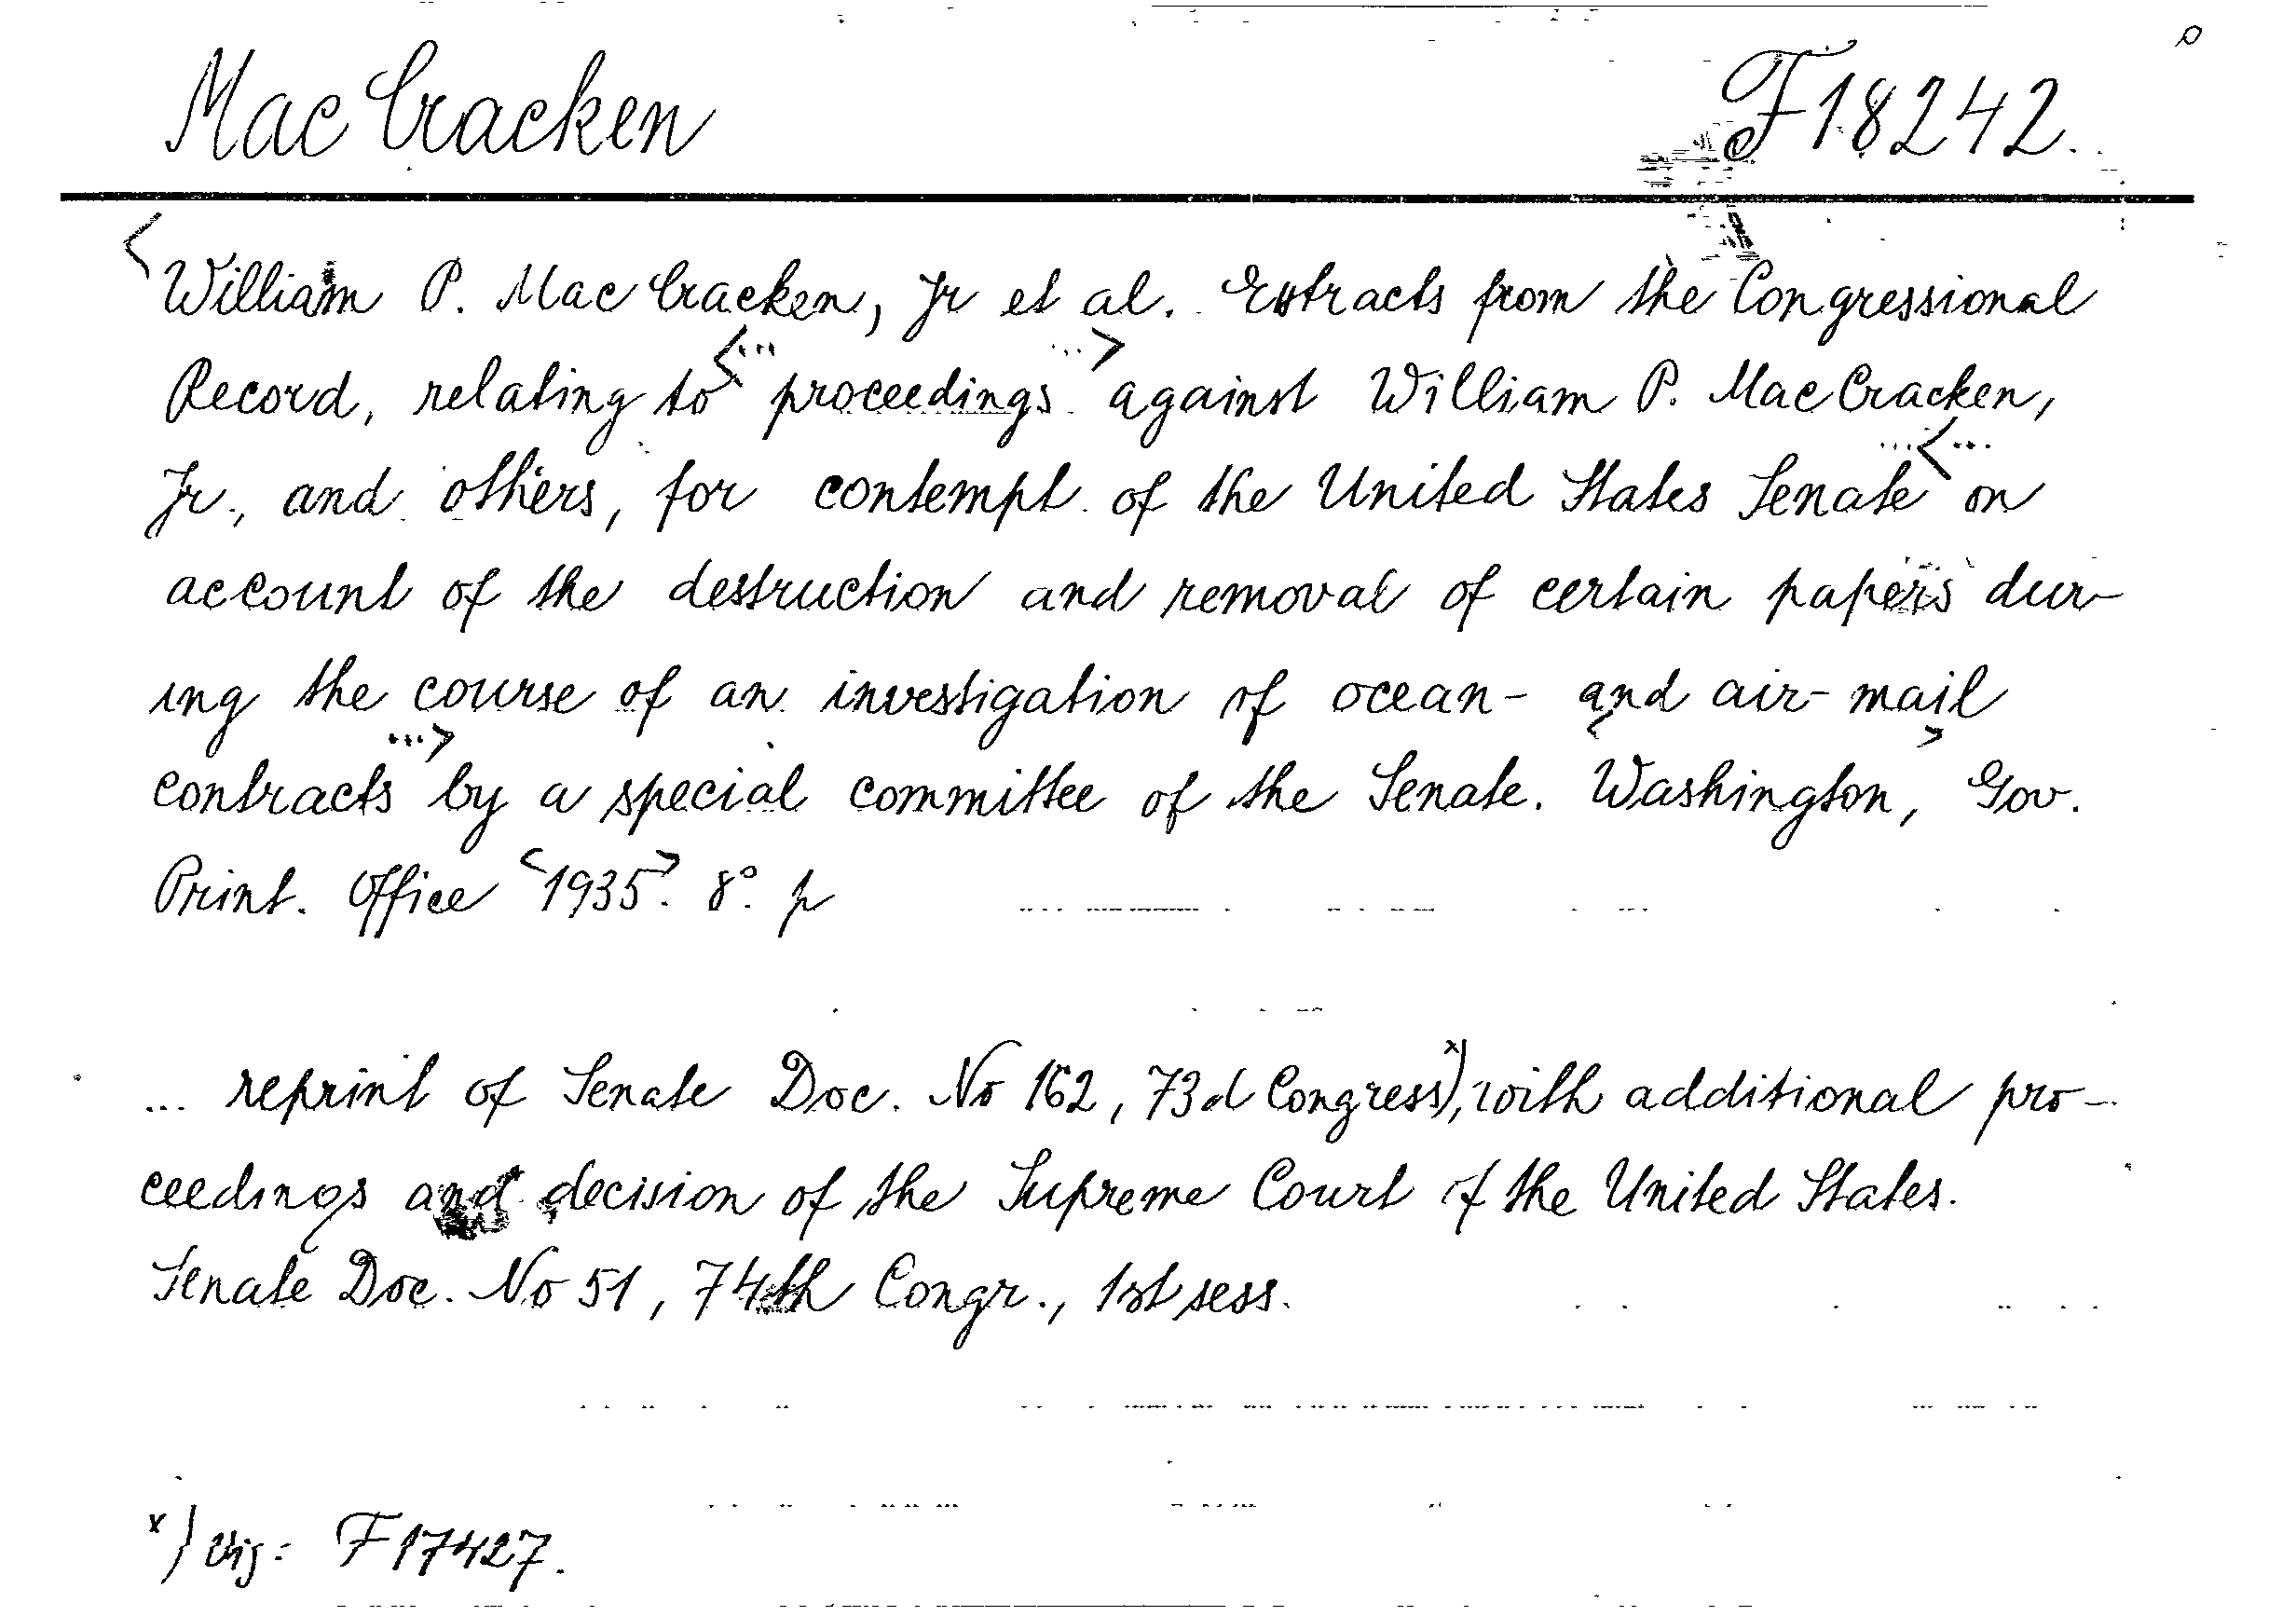 Mac Cracken F18242.
<William P. Mac Cracken, Jr et al. Extracts from the Congressional
Record, relating to <... proceedings ...> against William P. Mac Cracken,
Jr., and others, for contempt of the United States Senate ...<... on
account of the destruction and removal of certain papers dur-
ing the course of an investigation of ocean- and air-mail
contracts ...> by a special committee of the Senate. <Washington>, Gov.
Print. Office <1935>. 8°. p
... reprint of Senate Doc. No 162, 73d Congress x), with additional pro-
ceedings and decision of the Supreme Court of the United States.
Senate Doc. No 51, 74th Congr., 1st sess.
x) F17427.